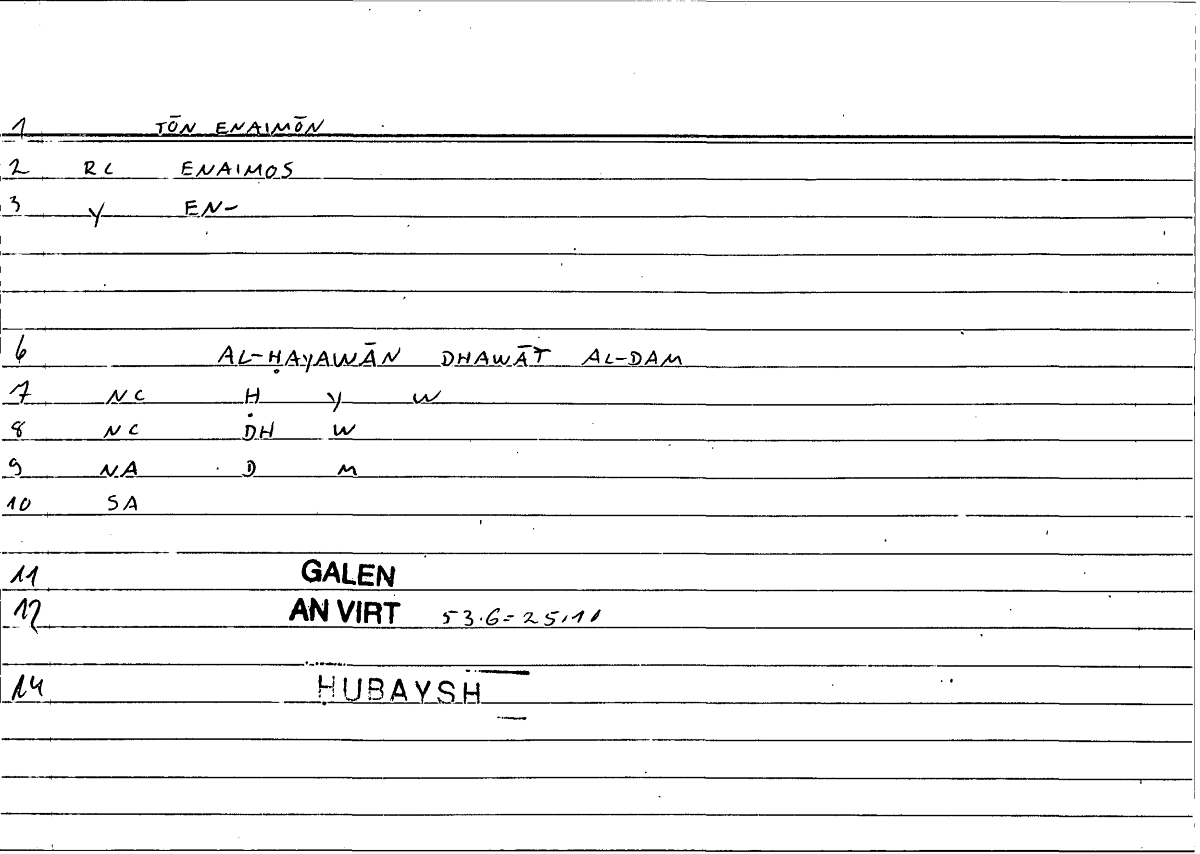 1 TŌN ENAIMŌN
2 RC ENAIMOS
3 Y EN-
6 AL-ḤAYAWĀN DHAWĀT AL-DAM
7 NC Ḥ Y W
8 NC DH W
9 NA D M
10 SA
11 GALEN
12 AN VIRT 53.6=25,11
14 ḤUBAYSH